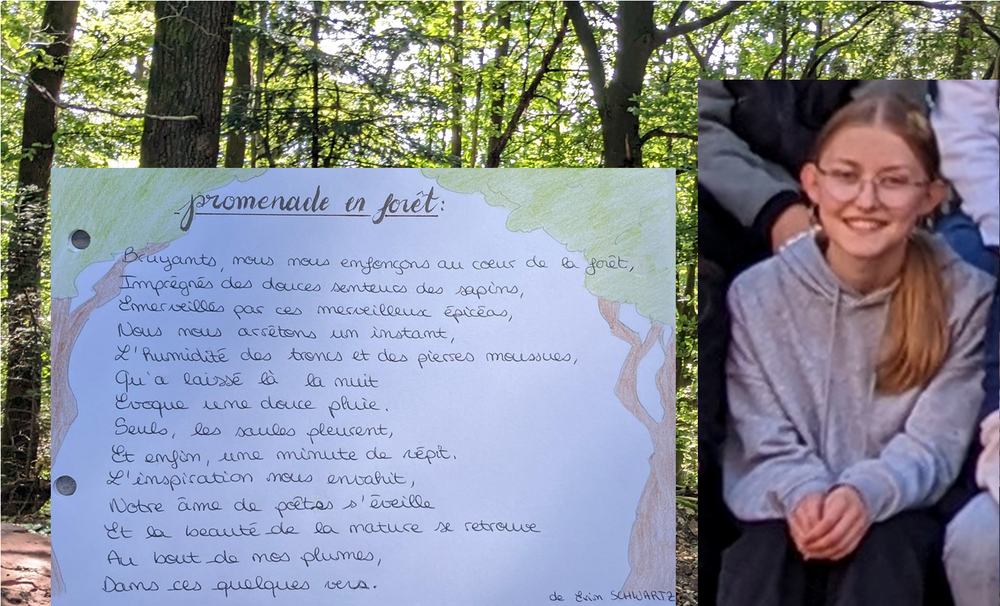 promenade en forêt:
Bruyants, nous nous enfonçons au coeur de la forêt,
Imprégnés des douces senteurs des sapins,
Emerveillés par ces merveilleux épicéas,
Nous nous arrêtons un instant,
L'humidité des troncs et des pierres moussues,
Qu'a laissé là la nuit
Evoque une douce pluie.
Seuls, les saules pleurent,
Et enfin, une minute de répit.
L'inspiration nous envahit,
Notre âme de poètes s'éveille
Et la beauté de la nature se retrouve
Au bout de nos plumes,
Dans ces quelques vers.
de SCHWARTZ